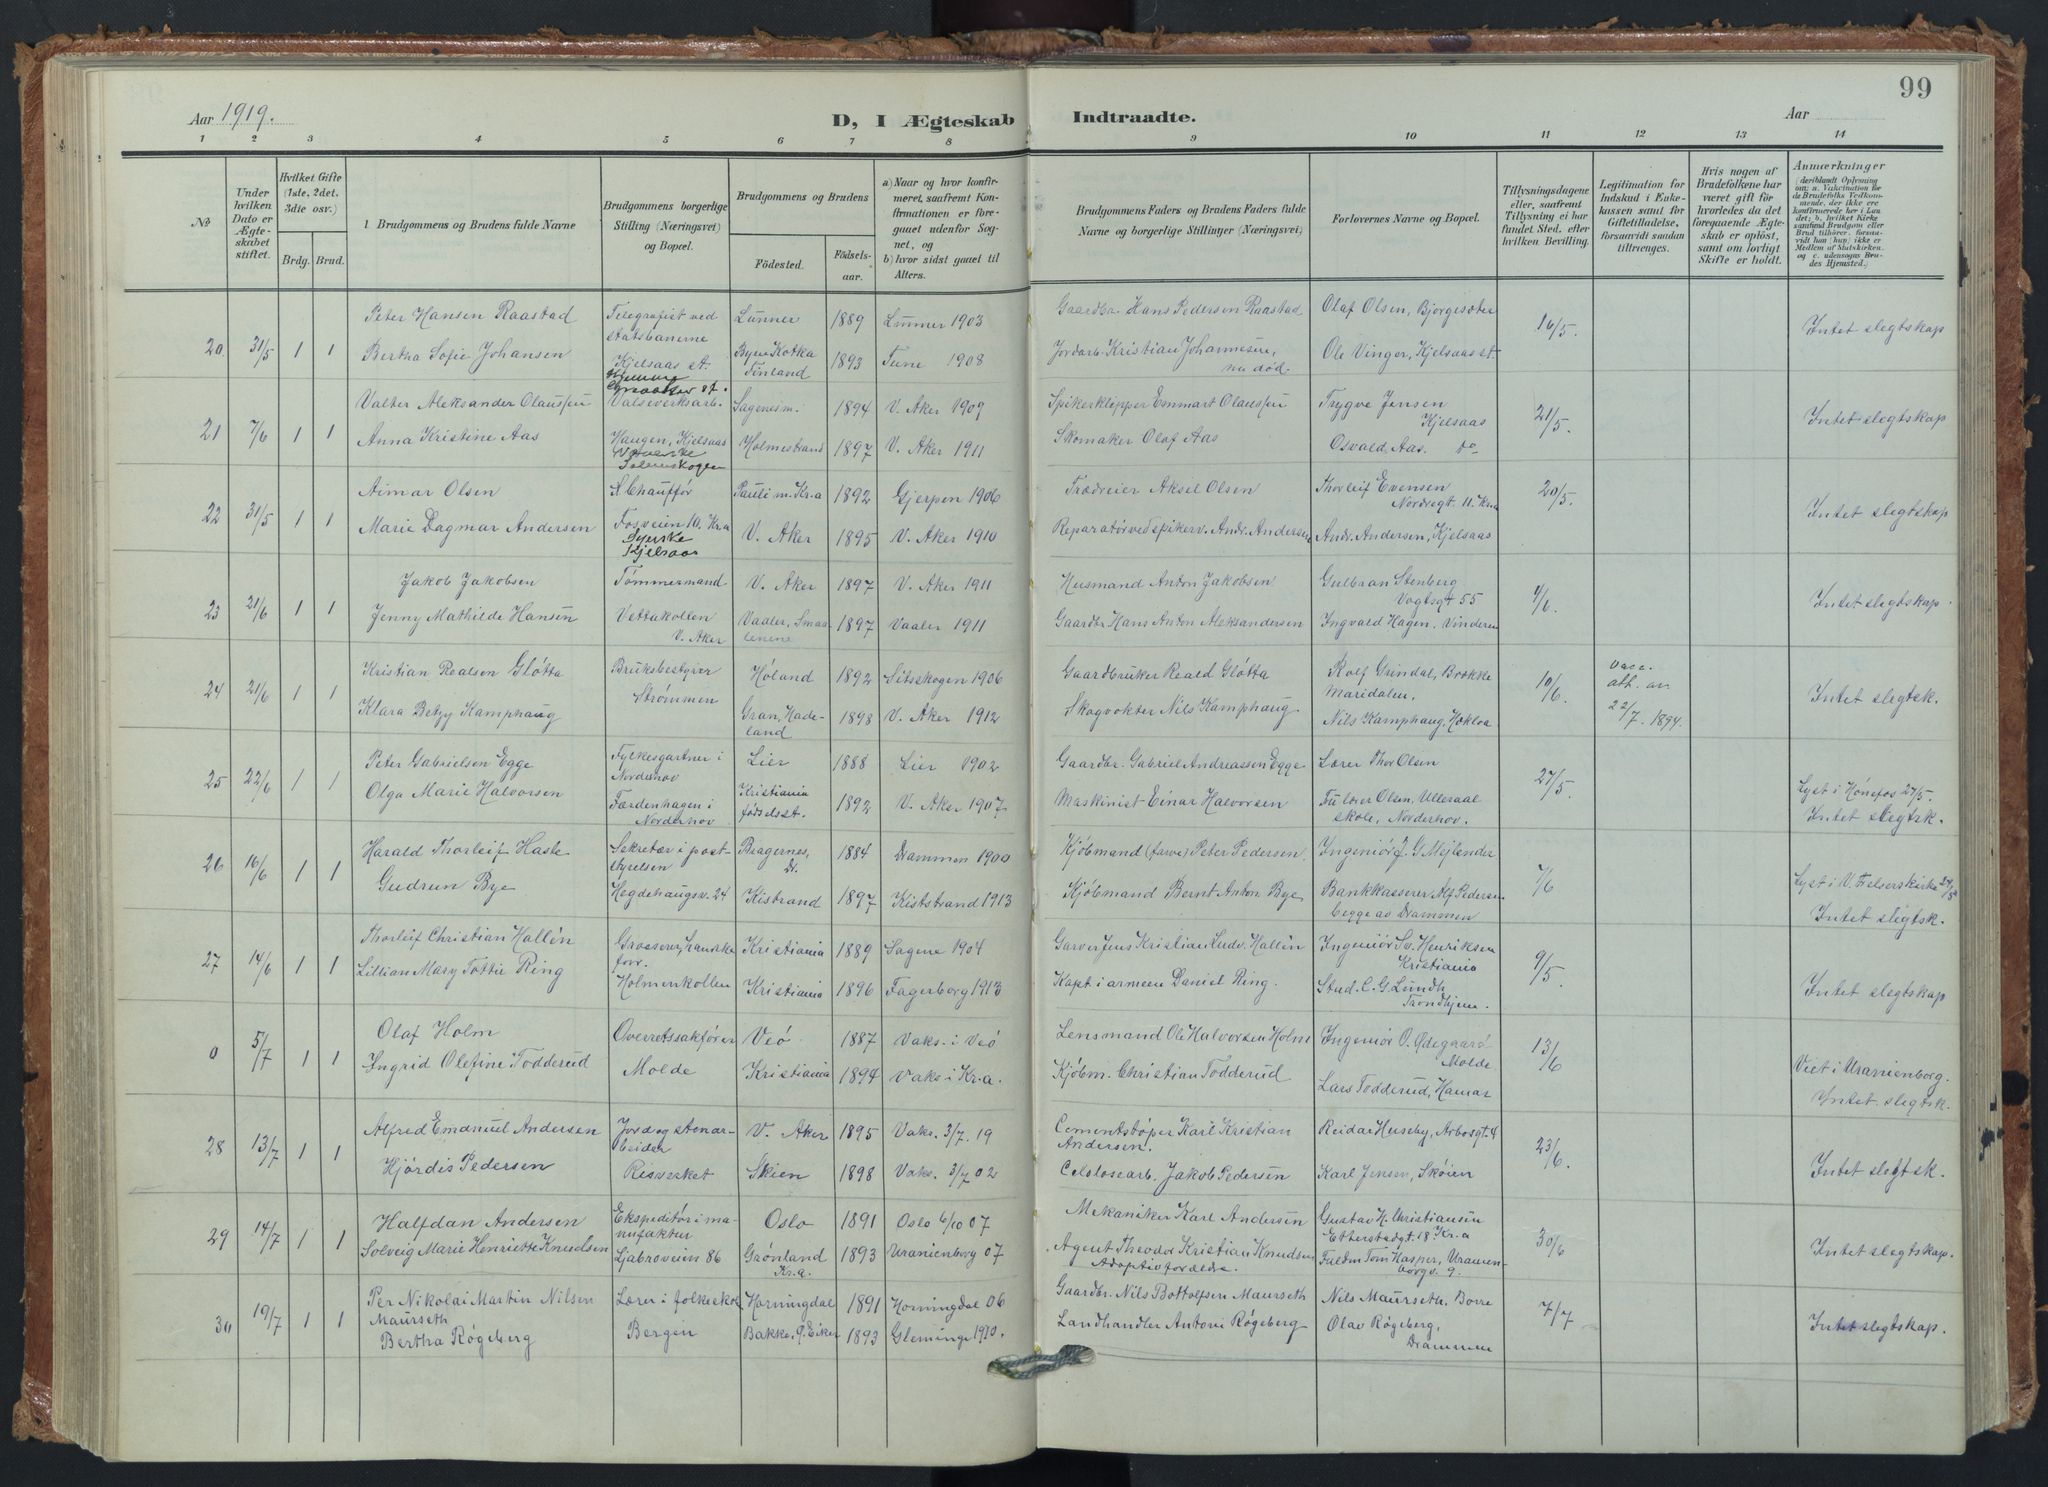 99
Aar 1919.
D, I Ægteskab Indtraadte.
Aar
1 2 3 4 5 6 7 8 9 10 11 12 13 14
No
Under hvilken Dato er Ægteskabet stiftet.
Hvilket Gifte (1ste, 2det, 3die osv.)
Brdg. Brud.
Brudgommens og Brudens fulde Navne
Brudgommens borgerlige Stilling (Næringsvei) og Bopæl.
Brudgommens og Brudens
Födested. Födselsaar.
a) Naar og hvor konfirmeret, saafremt Konfirmationen er foregaaet udenfor Sognet, og
b) hvor sidst gaaet til Alters.
Brudgommens Faders og Brudens Faders fulde Navne og borgerlige Stillinger (Næringsvei)
Forlovernes Navne og Bopæl.
Tillysningsdagene eller, saafremt Tillysning ei har fundet Sted, efter hvilken Bevilling.
Legitimation for Indskud i Enkekassen samt for Giftetilladelse, forsaavidt saadan tiltrænges.
Hvis nogen af Brudefolkene har været gift før hvorledes da det foregaaende Ægteskab er opløst, samt om lovligt Skifte er holdt.
Anmærkninger (deriblandt Oplysning om: a. Vakcination for de Brudefolks Vedkommende, der ikke ere konfirmerede her i Landet; b. hvilket Kirkesamfund Brudgom eller Brud tilhører, forsaavidt han (hun) ikke er Medlem af Statskirken, og c. udensogns Brudes Hjemsted.)
Peter Hansen Raastad Telegrafist ved statsbanerne Lunner 1889 Lunner 1903 Gaardbr. Hans Pedersen Raastad Olaf Olsen, Bjørgesæter
20 31/5 1 1 Bertha Sofie Johansen Kjelsaas st. Byen Kotka Finland 1893 Tune 1908 Jordarb. Kristian Johannesen, nu død. Ole Vinger, Kjelsaas st. 16/5. Intet slegtskap
Valter Aleksander Olaussen Valseverksarb. Sagene m. 1894 V. Aker 1909 Spikerklipper Emmart Olaussen Trygve Jensen Kjelsaas
21 7/6 1 1 Anna Kristine Aas Haugen, Kjelsaas Holmestrand 1897 V. Aker 1911 Skomaker Olaf Aas Osvald Aas. do 21/5. Intet slegtskap
Aimar Olsen Chauffør Pauli m. Kr.a 1892 Gjerpen 1906 Trædreier Aksel Olsen Thorleif Evensen Nordregt 11. Kr.a
22 31/5 1 1 Marie Dagmar Andersen Fosveien 10. Kr.a Syerske Kjelsaas V. Aker 1895 V. Aker 1910 Reparatør ved spikerv. Andr. Andersen Andr. Andersen, Kjelsaas 20/5. Intet slegtskap
Jakob Jakobsen Tømmermand V. Aker 1897 V. Aker 1911 Husmand Anton Jakobsen Gulbran Stenberg Vogtsgt 55
23 21/6 1 1 Jenny Mathilde Hansen Vettakollen V. Aker Vaaler, Smaalenene 1897 Vaaler 1911 Gaardbr Hans Anton Aleksandersen Ingvald Hagen. Vinderen 4/6. Intet slegtskap.
Kristian Realsen Gløtta Bruksbestyrer Høland 1892 Sitskogen 1906 Gaardbruker Reald Gløtta Rolf Grindal, Brække Maridalen.
24 21/6 1 1 Klara Betzy Kamphaug Strømmen Gran, Hadeland 1898 V. Aker 1912 Skogvokter Nils Kamphaug Nils Kamphaug, Hokloa 10/6. vacc. att. av 22/7. 1894. Intet slegtsk.
Peter Gabrielsen Egge Fylkesgartner i Norderhov Lier 1888 Lier 1902 Gaardbr. Gabriel Andreassen Egge Lærer Thor Olsen
25 22/6 1 1 Olga Marie Halvorsen Færdenhagen i Norderhov Kristiania fødselsst. 1892 V. Aker 1907 Maskinist Einar Halvorsen Fru lærer Olsen, Ulleraal skole, Norderhov. 27/5. Lyst i Hønefos 27/5. Intet slegtsk.
Harald Thorleif Haste Sekretær i poststyrelsen Bragernes, Dr. 1884 Drammen 1900 Kjøbmand (farve) Peter Pedersen Ingeniør J. G. Mejlænder
26 16/6 1 1 Gudrun Bye Hegdehaugsv. 24 Kistrand 1897 Kiststrand 1913 Kjøbmand Bernt Anton Bye Bankkasserer Alf Pedersen begge av Drammen 7/6 Lyst i V. Frelserskirke 24/5 Intet slegtsk.
Thorleif Christian Hallén Grosserer, Kristiania 1889 Sagene 1904 Garver Jens Kristian Ludv. Hallén Ingeniør Sv. Henriksen Kristiania
27 14/6 1 1 Lillian Mary Tottie Ring Holmenkollen Kristiania 1896 Fagerborg 1913 Kapt i armeen Daniel Ring. Stud. C. G. Lundh Trondhjem. 9/5. Intet slegtskap
Olaf Holm Overretssakfører Veø 1887 Vaks. i Veø Lensmand Ole Halvorsen Holm Ingeniør O. Ødegaard Molde
0 5/7 1 1 Ingrid Olefine Todderud Molde Kristiania 1894 Vaks i Kr.a. Kjøbm. Christian Todderud Lars Todderud, Hamar 13/6 Viet i Uranienborg. Intet slegtsk.
Alfred Emanuel Andersen Jord og stenarbeider V. Aker 1895 Vaks. 3/7. 19 Cementstøper Karl Kristian Andersen. Reidar Huseby, Arbosgt. 4
28 13/7 1 1 Hjørdis Pedersen Risverket Skien 1898 Vaks. 3/7 02 Celulosearb. Jakob Pedersen Karl Jensen, Skøien 23/6. Intet slegtsk.
Halfdan Andersen Ekspeditør i manufaktur Oslo 1891 Oslo 6/10 07 Mekaniker Karl Andersen Gustav H. Christiansen Etterstadgt. 18 Kr.a
29 14/7 1 1 Solveig Marie Henriette Knudsen Ljabroveien 86 Grønland Kr.a. 1893 Uranienborg 07 Agent Theodor Kristian Knudsen Adoptivforældre. Fuldm Tom Kasper, Uranienborgv. 9. 30/6 Intet slegtskap.
Per Nikolai Martin Nilsen Maurseth Lærer i folkeskol Horningdal 1891 Horningdal 06 Gaardbr. Nils Bottolfsen Maurseth Nils Maurseth. Borre
30 19/7 1 1 Bertha Røgeberg Bergen Bakke, Ø. Eiker 1893 Glemminge 1910. Landhandler Antoni Røgeberg Olav Røgeberg, Drammen 7/7 Intet slegtskap.